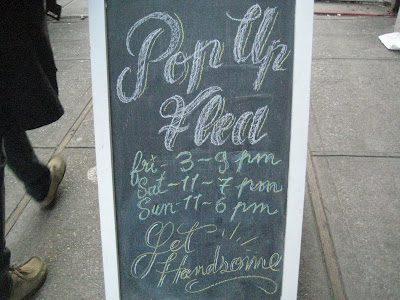 Pop Up
Flea
fri - 3 - 9 pm
Sat - 11 - 7 pm
Sun - 11 - 6 pm
Get
Handsome